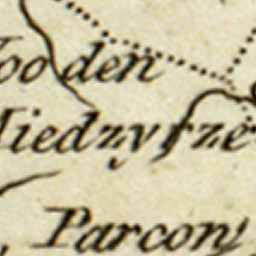 ooden
iedzyrze
Parcony